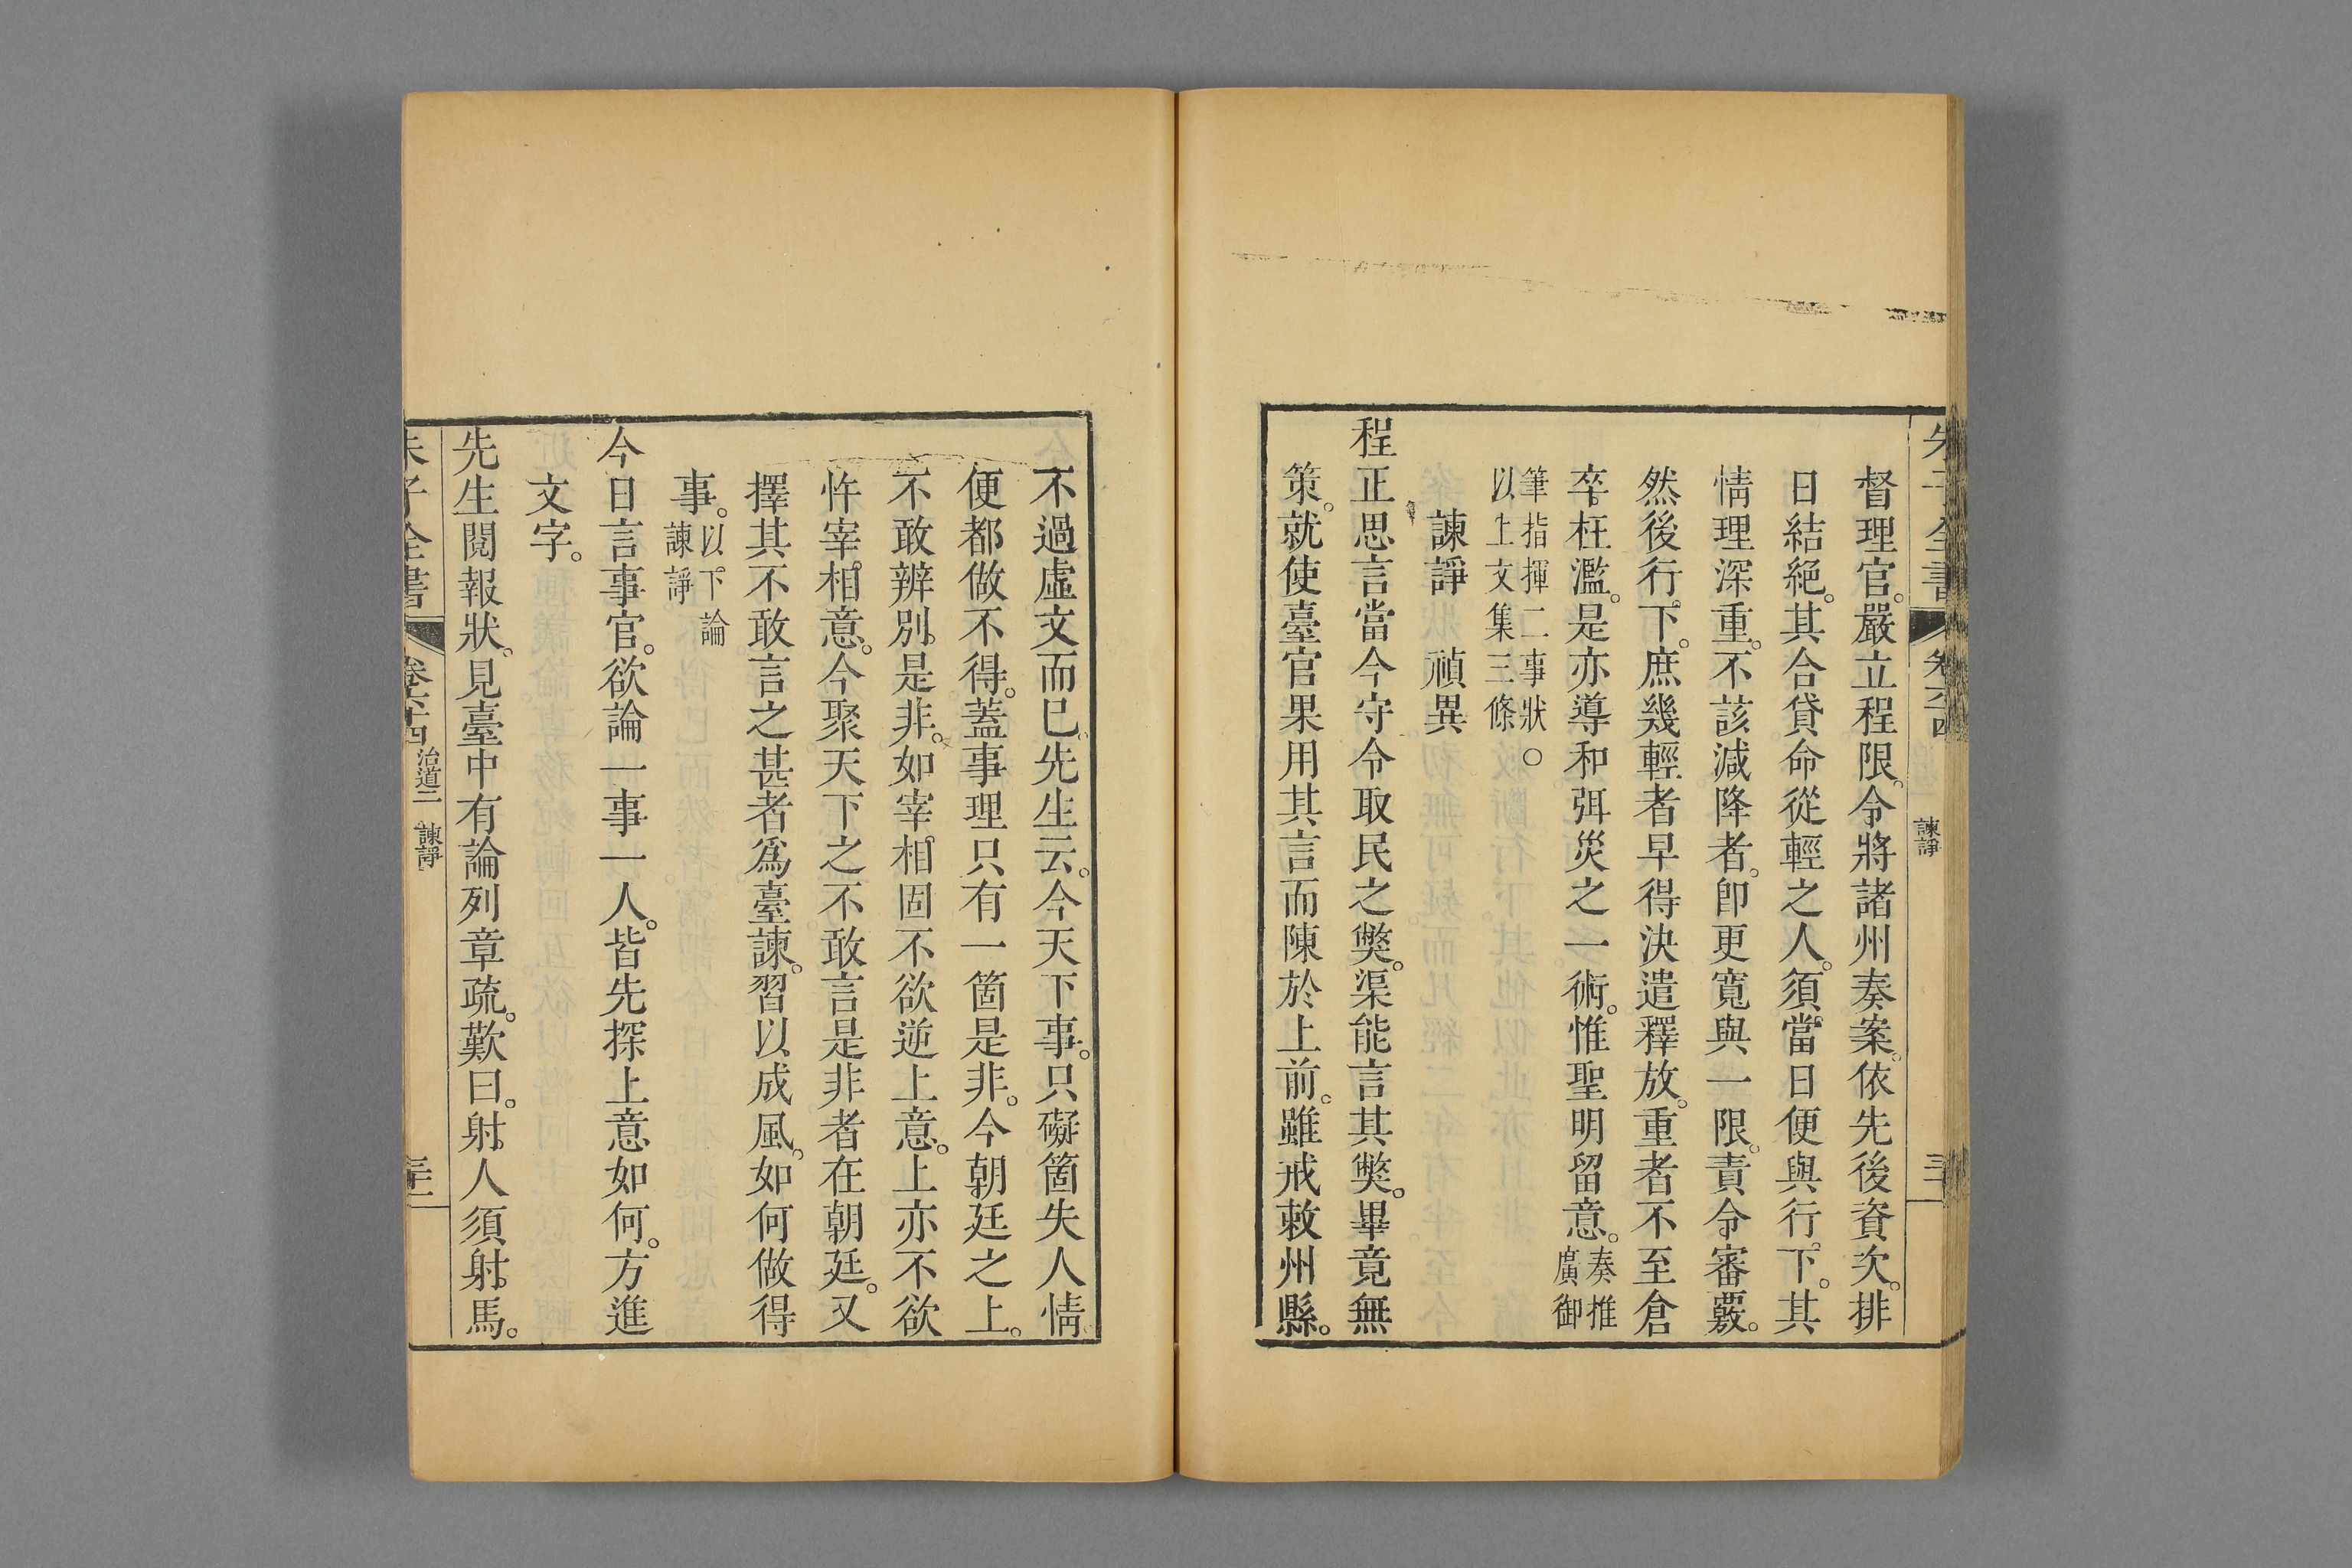 朱子全書 卷六十四 諫諍 三十
督理官。嚴立程限。令將諸州奏案。依先後資次。排
日結絕。其合貸命從輕之人。須當日便與行下。其
情理深重。不該減降者。卽更寬與一限。責令審覈。
然後行下。庶幾輕者早得決遣釋放。重者不至倉
卒枉濫。是亦導和弭災之一術。惟聖明留意。奏推廣御
筆指揮二事狀○以上文集三條
諫諍 禎異
程正思言當今守令取民之獘。渠能言其獘。畢竟無
策。就使臺官果用其言而陳於上前。雖戒敕州縣。
不過虛文而已。先生云。今天下事。只礙箇失人情。
便都做不得。蓋事理只有一箇是非。今朝廷之上。
不敢辨別是非。如宰相固不欲逆上意。上亦不欲
忤宰相意。今聚天下之不敢言是非者在朝廷。又
擇其不敢言之甚者爲臺諫。習以成風。如何做得
事。以下論諫諍
今日言事官。欲論一事一人。皆先探上意如何。方進
文字。
先生閱報狀。見臺中有論列章疏。歎曰。射人須射馬。
朱子全書 卷六十四 治道二 諫諍